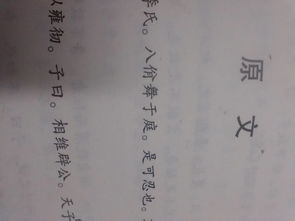 原文
季氏。八佾舞于庭。是可忍也。
以雍彻。子曰。相维辟公。天子